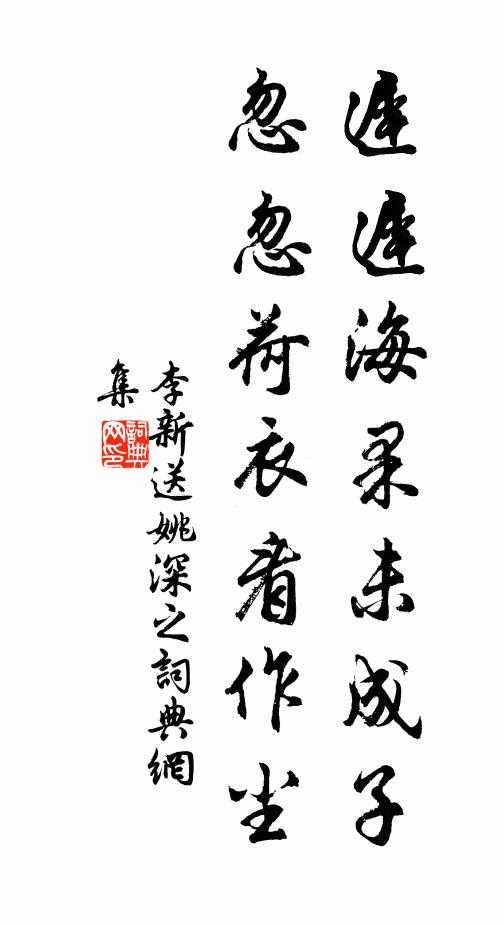 遲遲海果未成子
忽忽荷衣看作尘
李新送姚深之詞典網
集
詞典
网印